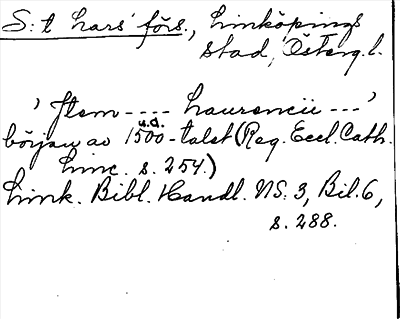 S:t Lars' förs., Linköpings
stad, Österg.l.
' Item ---- Laurencii ---'
u.d.
början av 1500-talet (Reg. Eccl. Cath.
Linc. s. 254.)
Link. Bibl. Handl. NS. 3, Bil. 6,
s. 288.